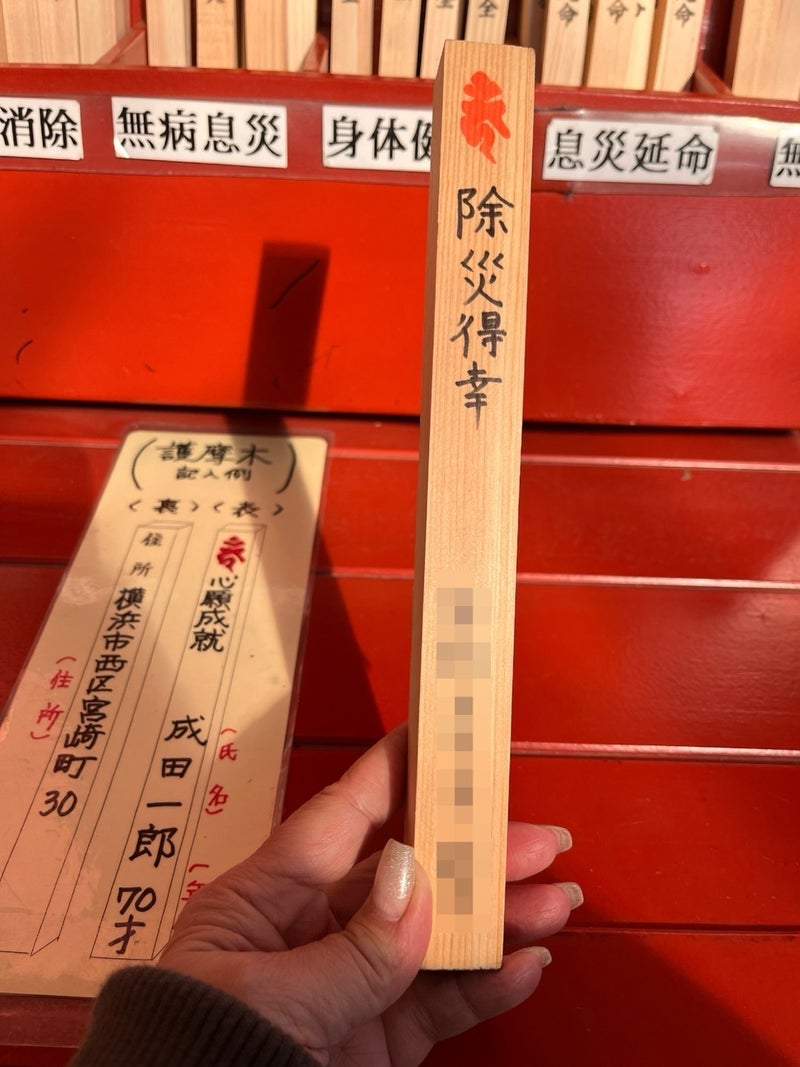 全
全
命
命
命
消除
無病息災
身体健
息災延命
無
除災得幸
(護摩木
記入例)
〈表〉
〈裏〉
心願成就
成田一郎 70才
(氏名)
(年
住所 横浜市西区宮崎町30
(住所)